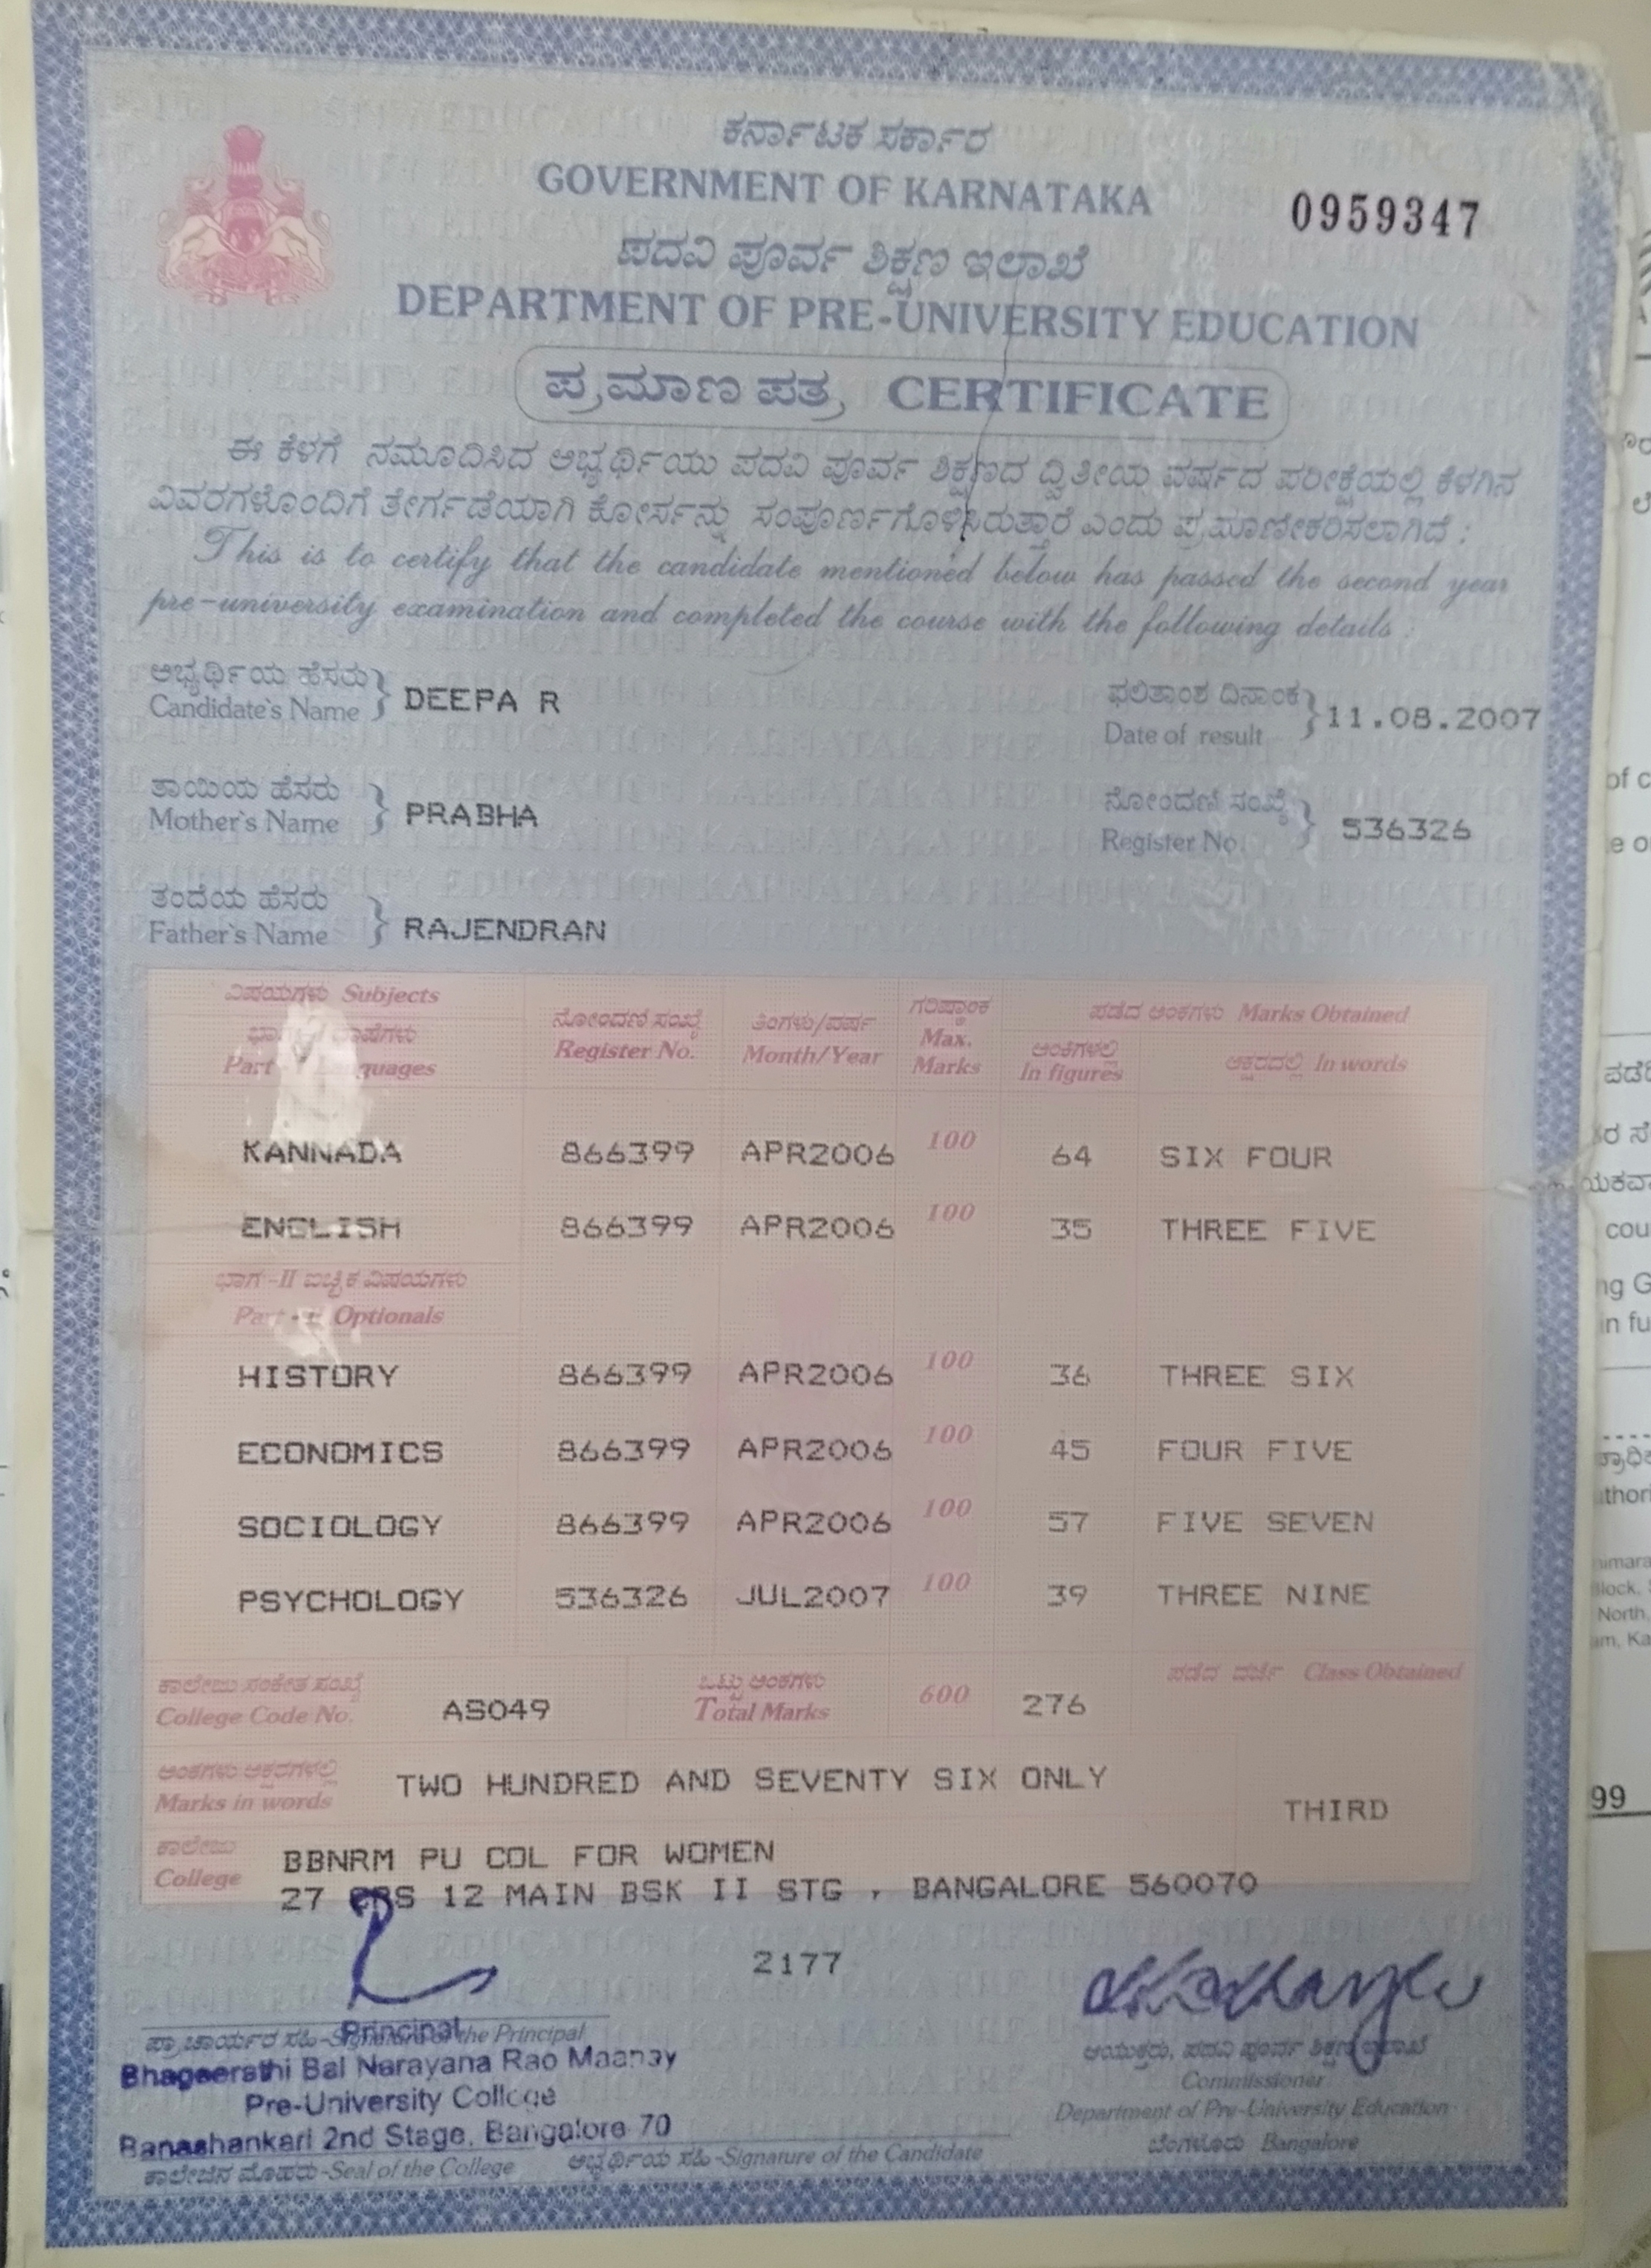 ಕರ್ನಾಟಕ ಸರ್ಕಾರ
GOVERNMENT OF KARNATAKA
0959347
ಪದವಿ ಪೂರ್ವ ಶಿಕ್ಷಣ ಇಲಾಖೆ
DEPARTMENT OF PRE-UNIVERSITY EDUCATION
ಪ್ರಮಾಣ ಪತ್ರ CERTIFICATE
ಈ ಕೆಳಗೆ ನಮೂದಿಸಿದ ಅಭ್ಯರ್ಥಿಯು ಪದವಿ ಪೂರ್ವ ಶಿಕ್ಷಣದ ದ್ವಿತೀಯ ವರ್ಷದ ಪರೀಕ್ಷೆಯಲ್ಲಿ ಕೆಳಗಿನ
ವಿವರಗಳೊಂದಿಗೆ ತೇರ್ಗಡೆಯಾಗಿ ಕೋರ್ಸನ್ನು ಸಂಪೂರ್ಣಗೊಳಿಸಿರುತ್ತಾರೆ ಎಂದು ಪ್ರಮಾಣೀಕರಿಸಲಾಗಿದೆ :
This is to certify that the candidate mentioned below has passed the second year
pre-university examination and completed the course with the following details :
ಅಭ್ಯರ್ಥಿಯ ಹೆಸರು
Candidate's Name } DEEPA R
ಫಲಿತಾಂಶ ದಿನಾಂಕ
Date of result } 11.08.2007
ತಾಯಿಯ ಹೆಸರು
Mother's Name } PRABHA
ನೋಂದಣಿ ಸಂಖ್ಯೆ
Register No. } 536326
ತಂದೆಯ ಹೆಸರು
Father's Name } RAJENDRAN
ವಿಷಯಗಳು Subjects
Part Languages
ನೋಂದಣಿ ಸಂಖ್ಯೆ Register No.
ತಿಂಗಳು/ವರ್ಷ Month/Year
ಗರಿಷ್ಠಾಂಕ Max. Marks
ಪಡೆದ ಅಂಕಗಳು Marks Obtained
ಅಂಕಿಗಳಲ್ಲಿ In figures
ಅಕ್ಷರದಲ್ಲಿ In words
KANNADA 866399 APR2006 100 64 SIX FOUR
ENGLISH 866399 APR2006 100 35 THREE FIVE
ಭಾಗ-II ಐಚ್ಛಿಕ ವಿಷಯಗಳು
Part - II Optionals
HISTORY 866399 APR2006 100 36 THREE SIX
ECONOMICS 866399 APR2006 100 45 FOUR FIVE
SOCIOLOGY 866399 APR2006 100 57 FIVE SEVEN
PSYCHOLOGY 536326 JUL2007 100 39 THREE NINE
ಕಾಲೇಜು ಸಂಕೇತ ಸಂಖ್ಯೆ
College Code No. AS049
ಒಟ್ಟು ಅಂಕಗಳು
Total Marks 600 276
ಪಡೆದ ದರ್ಜೆ Class Obtained
THIRD
ಅಂಕಗಳು ಅಕ್ಷರಗಳಲ್ಲಿ
Marks in words TWO HUNDRED AND SEVENTY SIX ONLY
ಕಾಲೇಜು
College BBNRM PU COL FOR WOMEN
27 CRS 12 MAIN BSK II STG , BANGALORE 560070
2177
ಪ್ರಾಚಾರ್ಯರ ಸಹಿ-Signature of the Principal
Principal
Bhageerathi Bai Narayana Rao Maanay
Pre-University College
Banashankari 2nd Stage, Bangalore 70
ಕಾಲೇಜಿನ ಮೊಹರು-Seal of the College
ಅಭ್ಯರ್ಥಿಯ ಸಹಿ-Signature of the Candidate
ಆಯುಕ್ತರು, ಪದವಿ ಪೂರ್ವ ಶಿಕ್ಷಣ ಇಲಾಖೆ
Commissioner
Department of Pre-University Education
ಬೆಂಗಳೂರು Bangalore